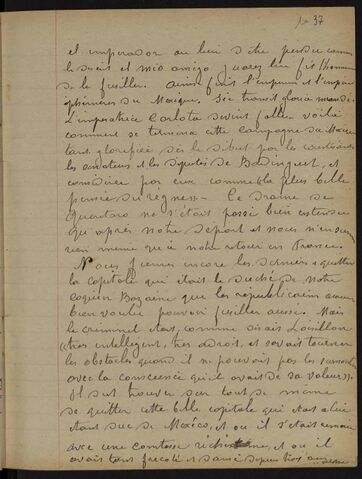 37
et imperador au lieu d'être perdu comme
le disait et mio amigo Juarez lui fit l'honneur
de le fusiller. Ainsi finit l'empereur et l'empire
éphémères du Mexique. Sic transit gloria mundi
L'impératrice Carlota devint folle. voilà
comment se termina cette Campagne du Mexique
tant glorifiée dès le début par les
les sénateurs et les députés de Badinguet, et
considérée par eux comme la plus belle
pensée du règne. Le drame de
Queretaro ne s'était passé bien entendu
qu'après notre départ et nous n'en
rien même qu'à notre retour en France.
Nous fumes encore les derniers à quitter
la capitale qui était le duché de notre
coquin Bazaine que les républicains auraient
bien voulu pouvoir fusiller aussi. Mais
le criminel était, comme disait Loisillon
très intelligent, très adroit, et savait tourner
les obstacles quand il ne pouvait pas les
avec la conscience qu'il avait de sa valeur.
Il dut trouver dur tout de même
de quitter cette belle capitale qui était
duc de Mexico, et ou il s'était
avec une comtesse et ou il
avait tant fricoté et dansé depuis trois ans